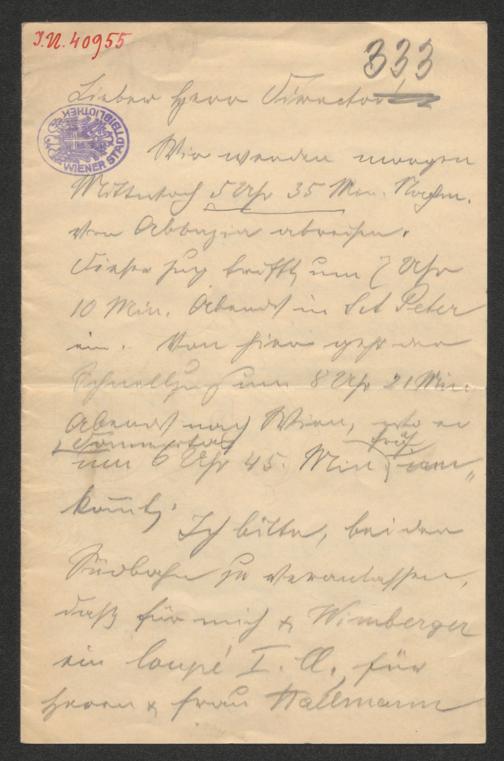 I.N. 40955
333
Lieber Herr Director!
WIENER STADTBIBLIOTHEK
Wir werden morgen
Mittwoch 5 Uhr 35 Min. Nachm.
von Abbazia abreisen.
Dieser Zug trifft um 7 Uhr
10 Min. Abends in Sct Peter
ein. Von hier geht der
Schnellzug um 8 Uhr 21 Min.
Abends nach Wien, wo er
Donnerstag
früh
um 6 Uhr 45. Min an
kom̄t.
Ich bitte, bei der
Südbahn zu veranlassen,
daß für mich & Wimberger
ein Coupé I. Cl. für
Herrn & Frau Hallmann